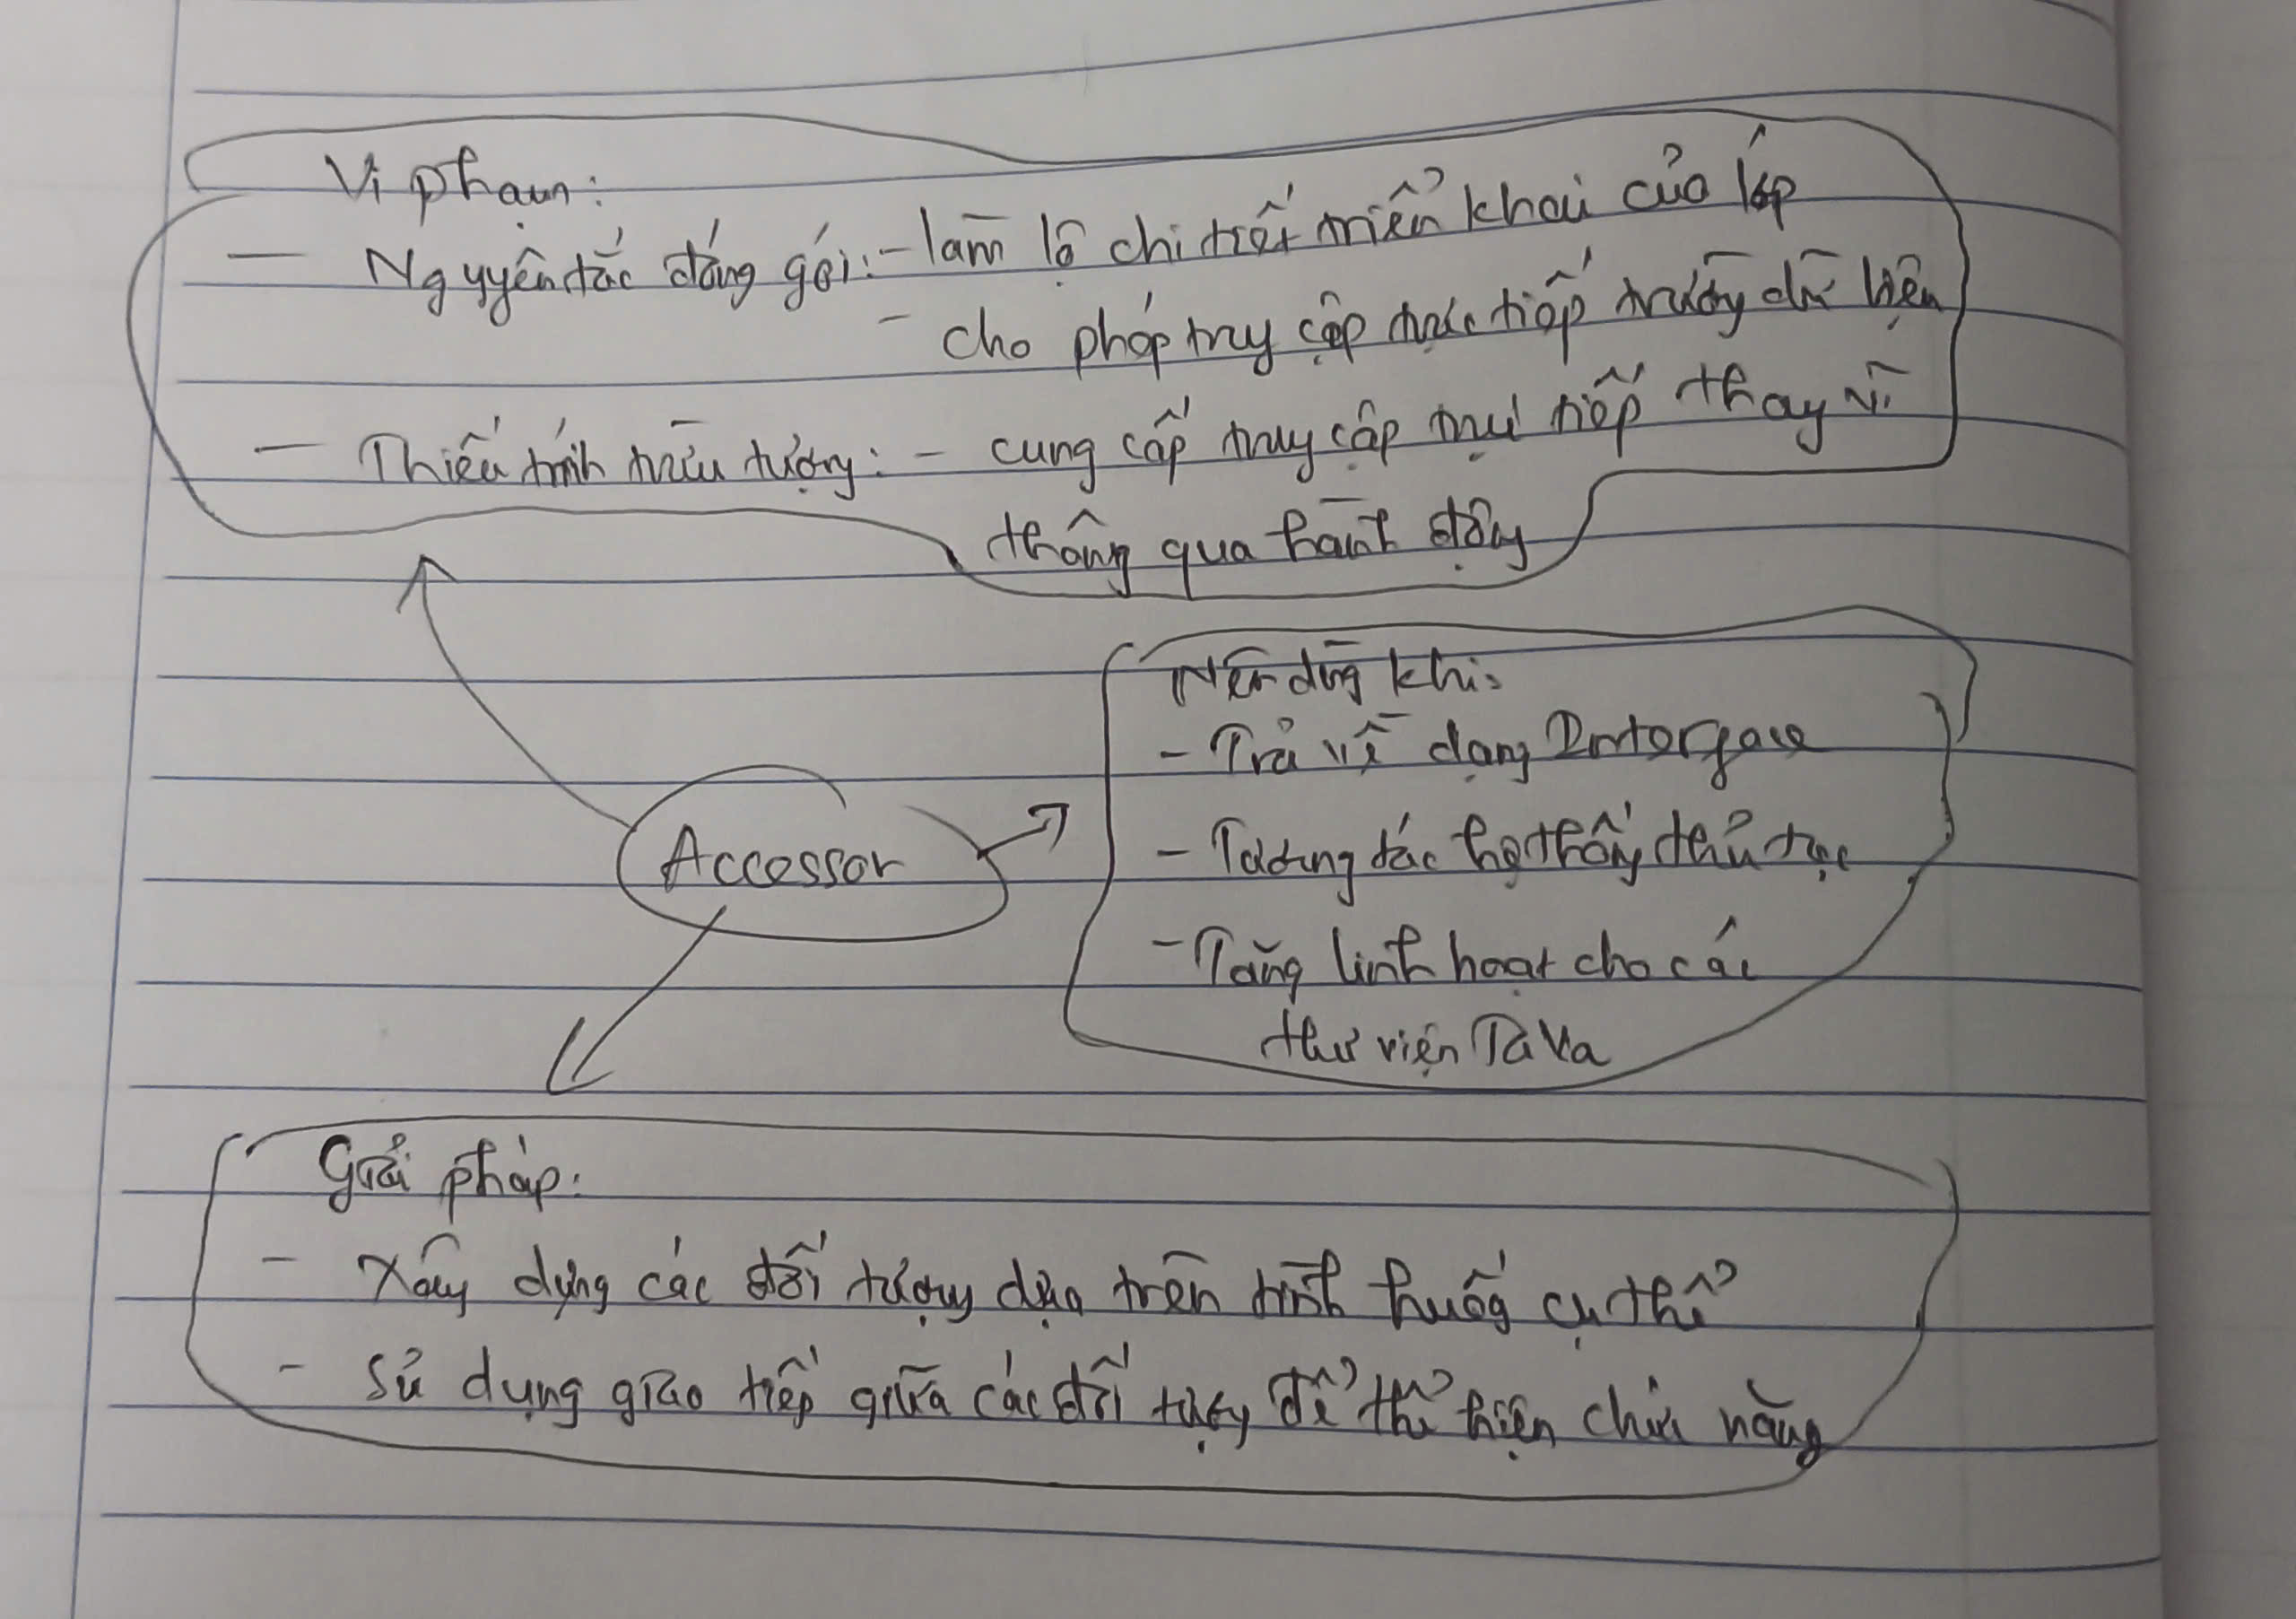 Vi phạm:
- Nguyên tắc đóng gói: - làm lộ chi tiết triển khai của lớp
- cho phép truy cập trực tiếp trường dữ liệu
- Thiếu tính trừu tượng: - cung cấp truy cập trực tiếp thay vì
thông qua hành động
Nên dùng khi:
- Trả về dạng Interface
- Tương tác hệ thống thủ tục
Accessor
- Tăng linh hoạt cho các
thư viện Java
Giải pháp:
- Xây dựng các đối tượng dựa trên tình huống cụ thể
- Sử dụng giao tiếp giữa các đối tượng để thể hiện chức năng